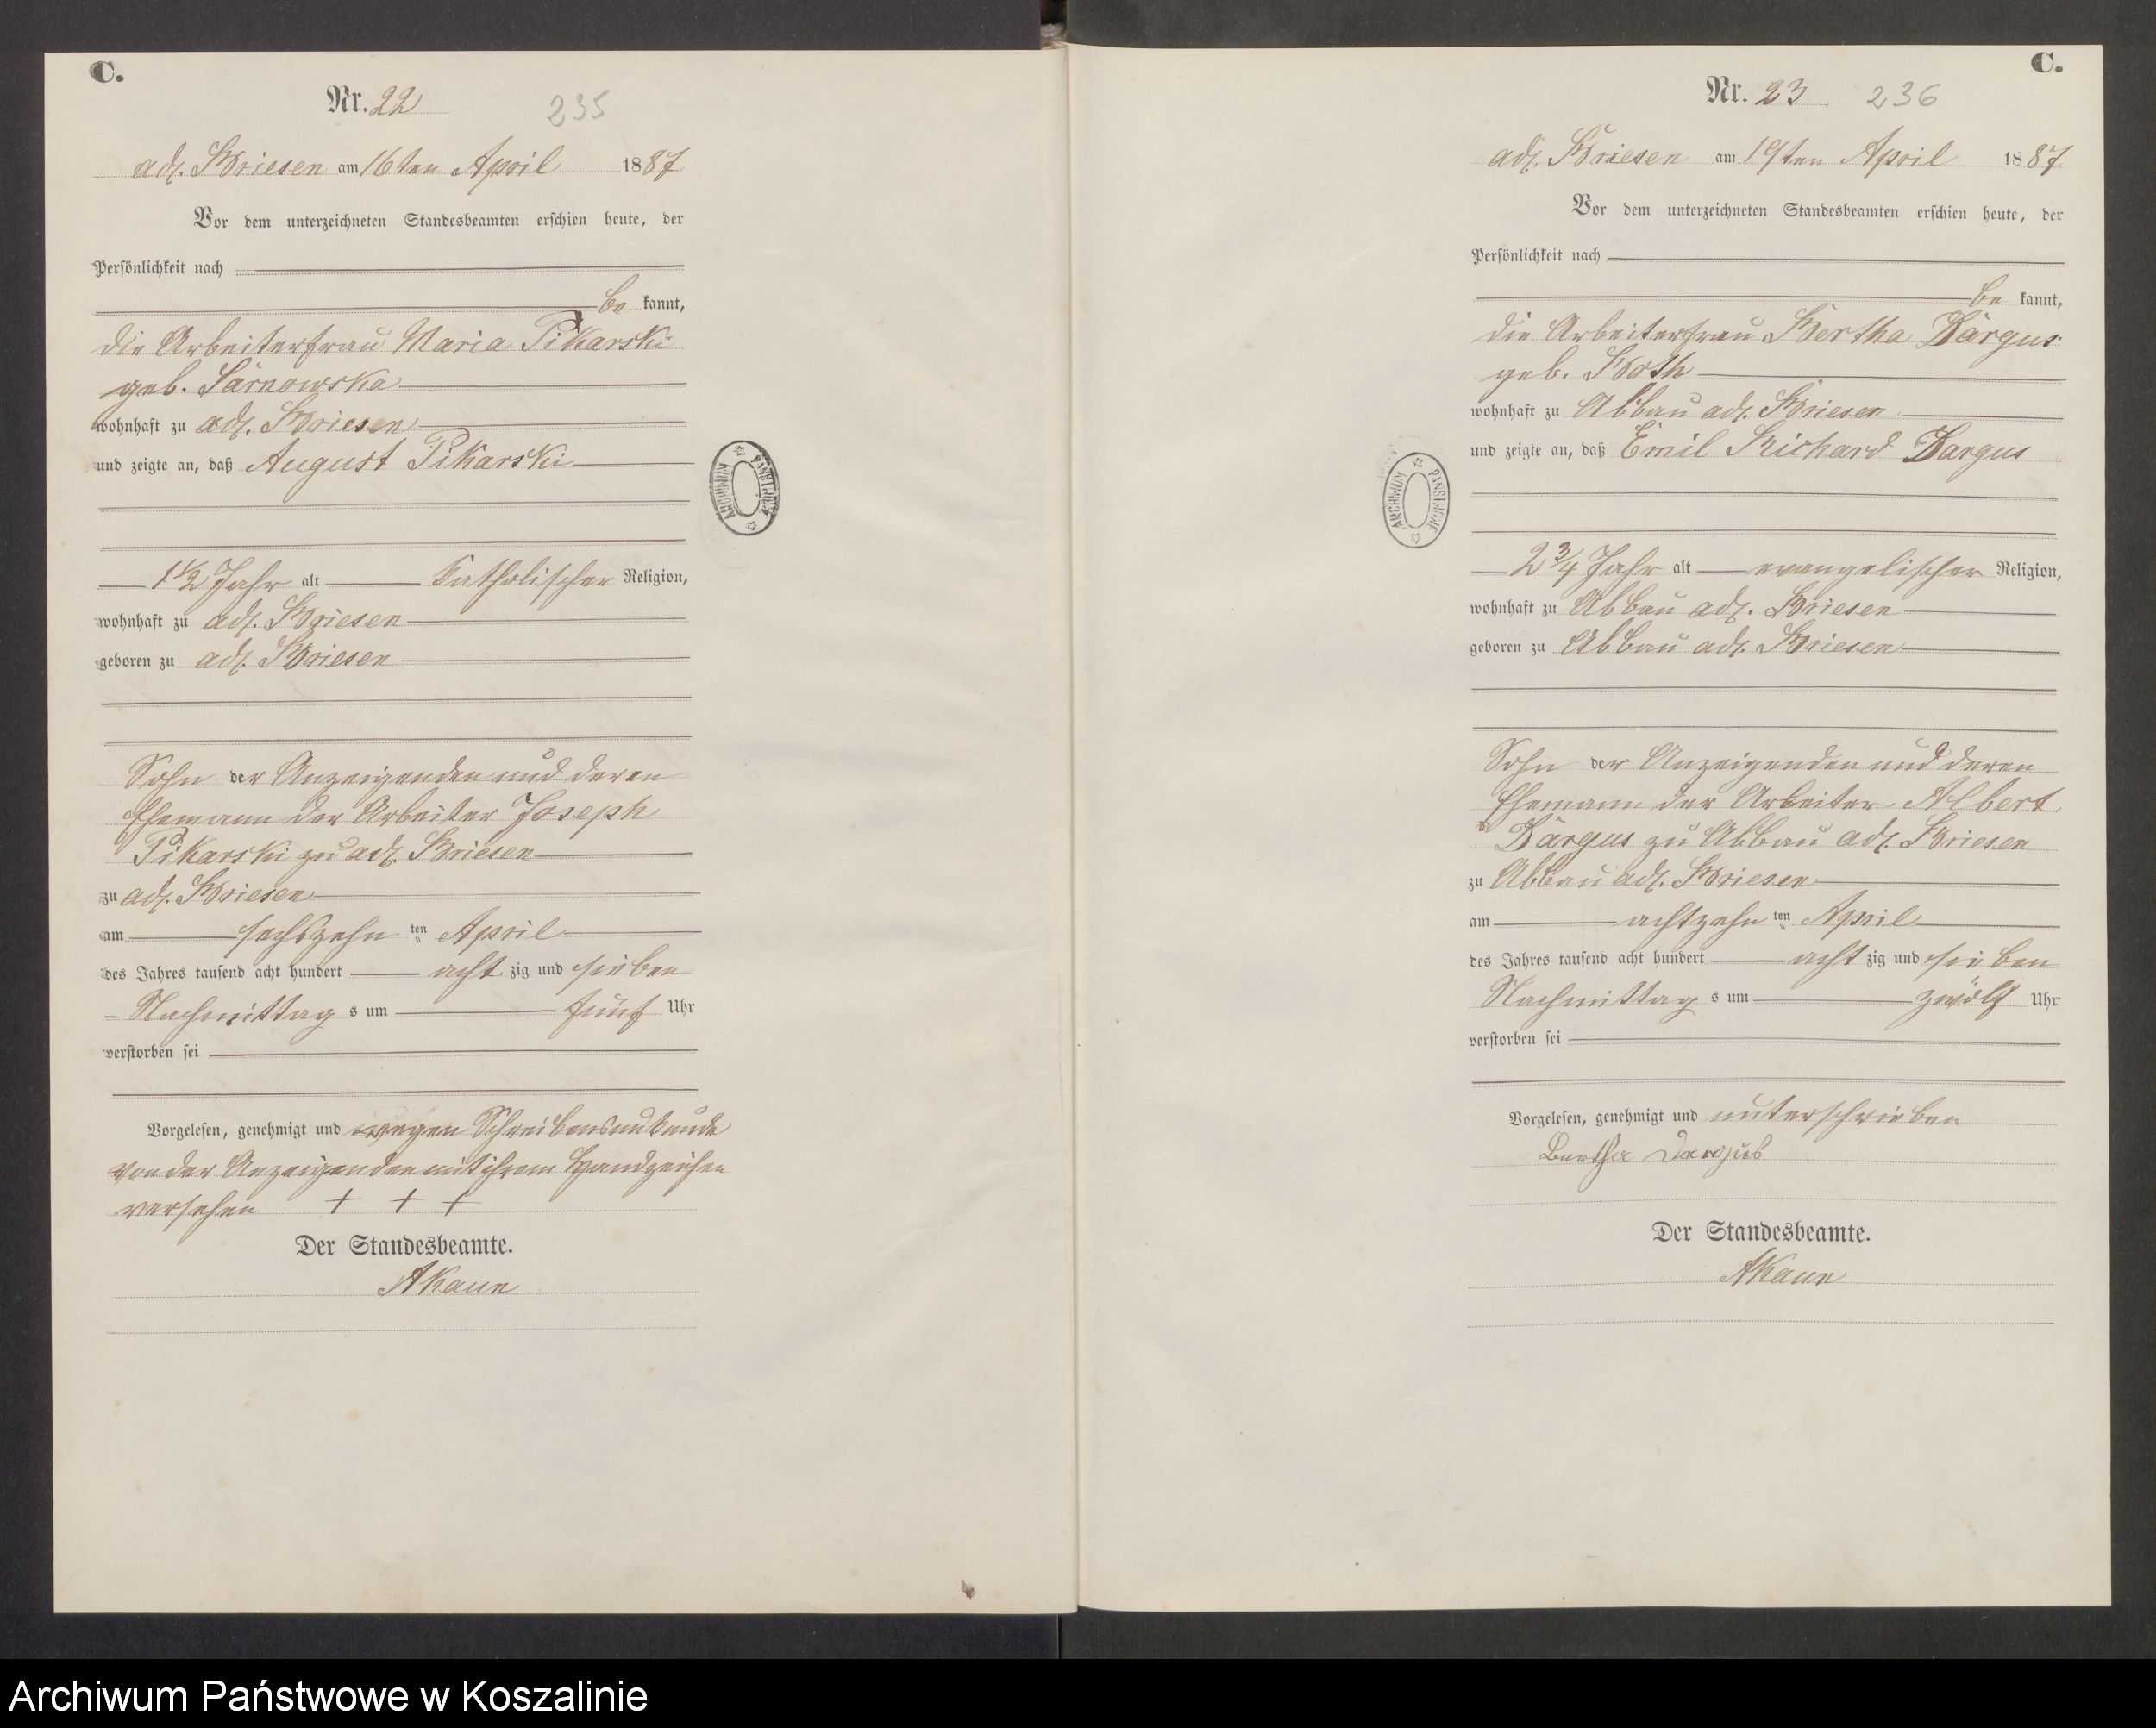 C.
Nr. 22 235
adl. Briesen am 16ten April 1887
Vor dem unterzeichneten Standesbeamten erschien heute, der
Persönlichkeit nach
be kannt,
die Arbeiterfrau Maria Pikarski
geb. Sarnowska
wohnhaft zu adl. Briesen
und zeigte an, daß August Pikarski
1½ Jahr alt katholischer Religion,
wohnhaft zu adl. Briesen
geboren zu adl. Briesen
Sohn der Anzeigenden und deren
Ehemann der Arbeiter Joseph
Pikarski zu adl. Briesen
zu adl. Briesen
am sechszehn ten April
des Jahres tausend acht hundert acht zig und sieben
Nachmittag s um fünf Uhr
verstorben sei
Vorgelesen, genehmigt und wegen Schreibensunkunde
von der Anzeigenden mit ihrem Handzeichen
versehen + + +
Der Standesbeamte.
AKaun
ARCHIWUM PAŃSTWOWE
C.
Nr. 23 236
adl. Briesen am 19ten April 1887
Vor dem unterzeichneten Standesbeamten erschien heute, der
Persönlichkeit nach
be kannt,
die Arbeiterfrau Bertha Dargus
geb. Both
wohnhaft zu Abbau adl. Briesen
und zeigte an, daß Emil Richard Dargus
2¾ Jahr alt evangelischer Religion,
wohnhaft zu Abbau adl. Briesen
geboren zu Abbau adl. Briesen
Sohn der Anzeigenden und deren
Ehemann der Arbeiter Albert
Dargus zu Abbau adl. Briesen
zu Abbau adl. Briesen
am achtzehn ten April
des Jahres tausend acht hundert acht zig und sieben
Nachmittag s um zwölf Uhr
verstorben sei
Vorgelesen, genehmigt und unterschrieben
Bertha Dargus
Der Standesbeamte.
AKaun
ARCHIWUM PAŃSTWOWE
Archiwum Państwowe w Koszalinie